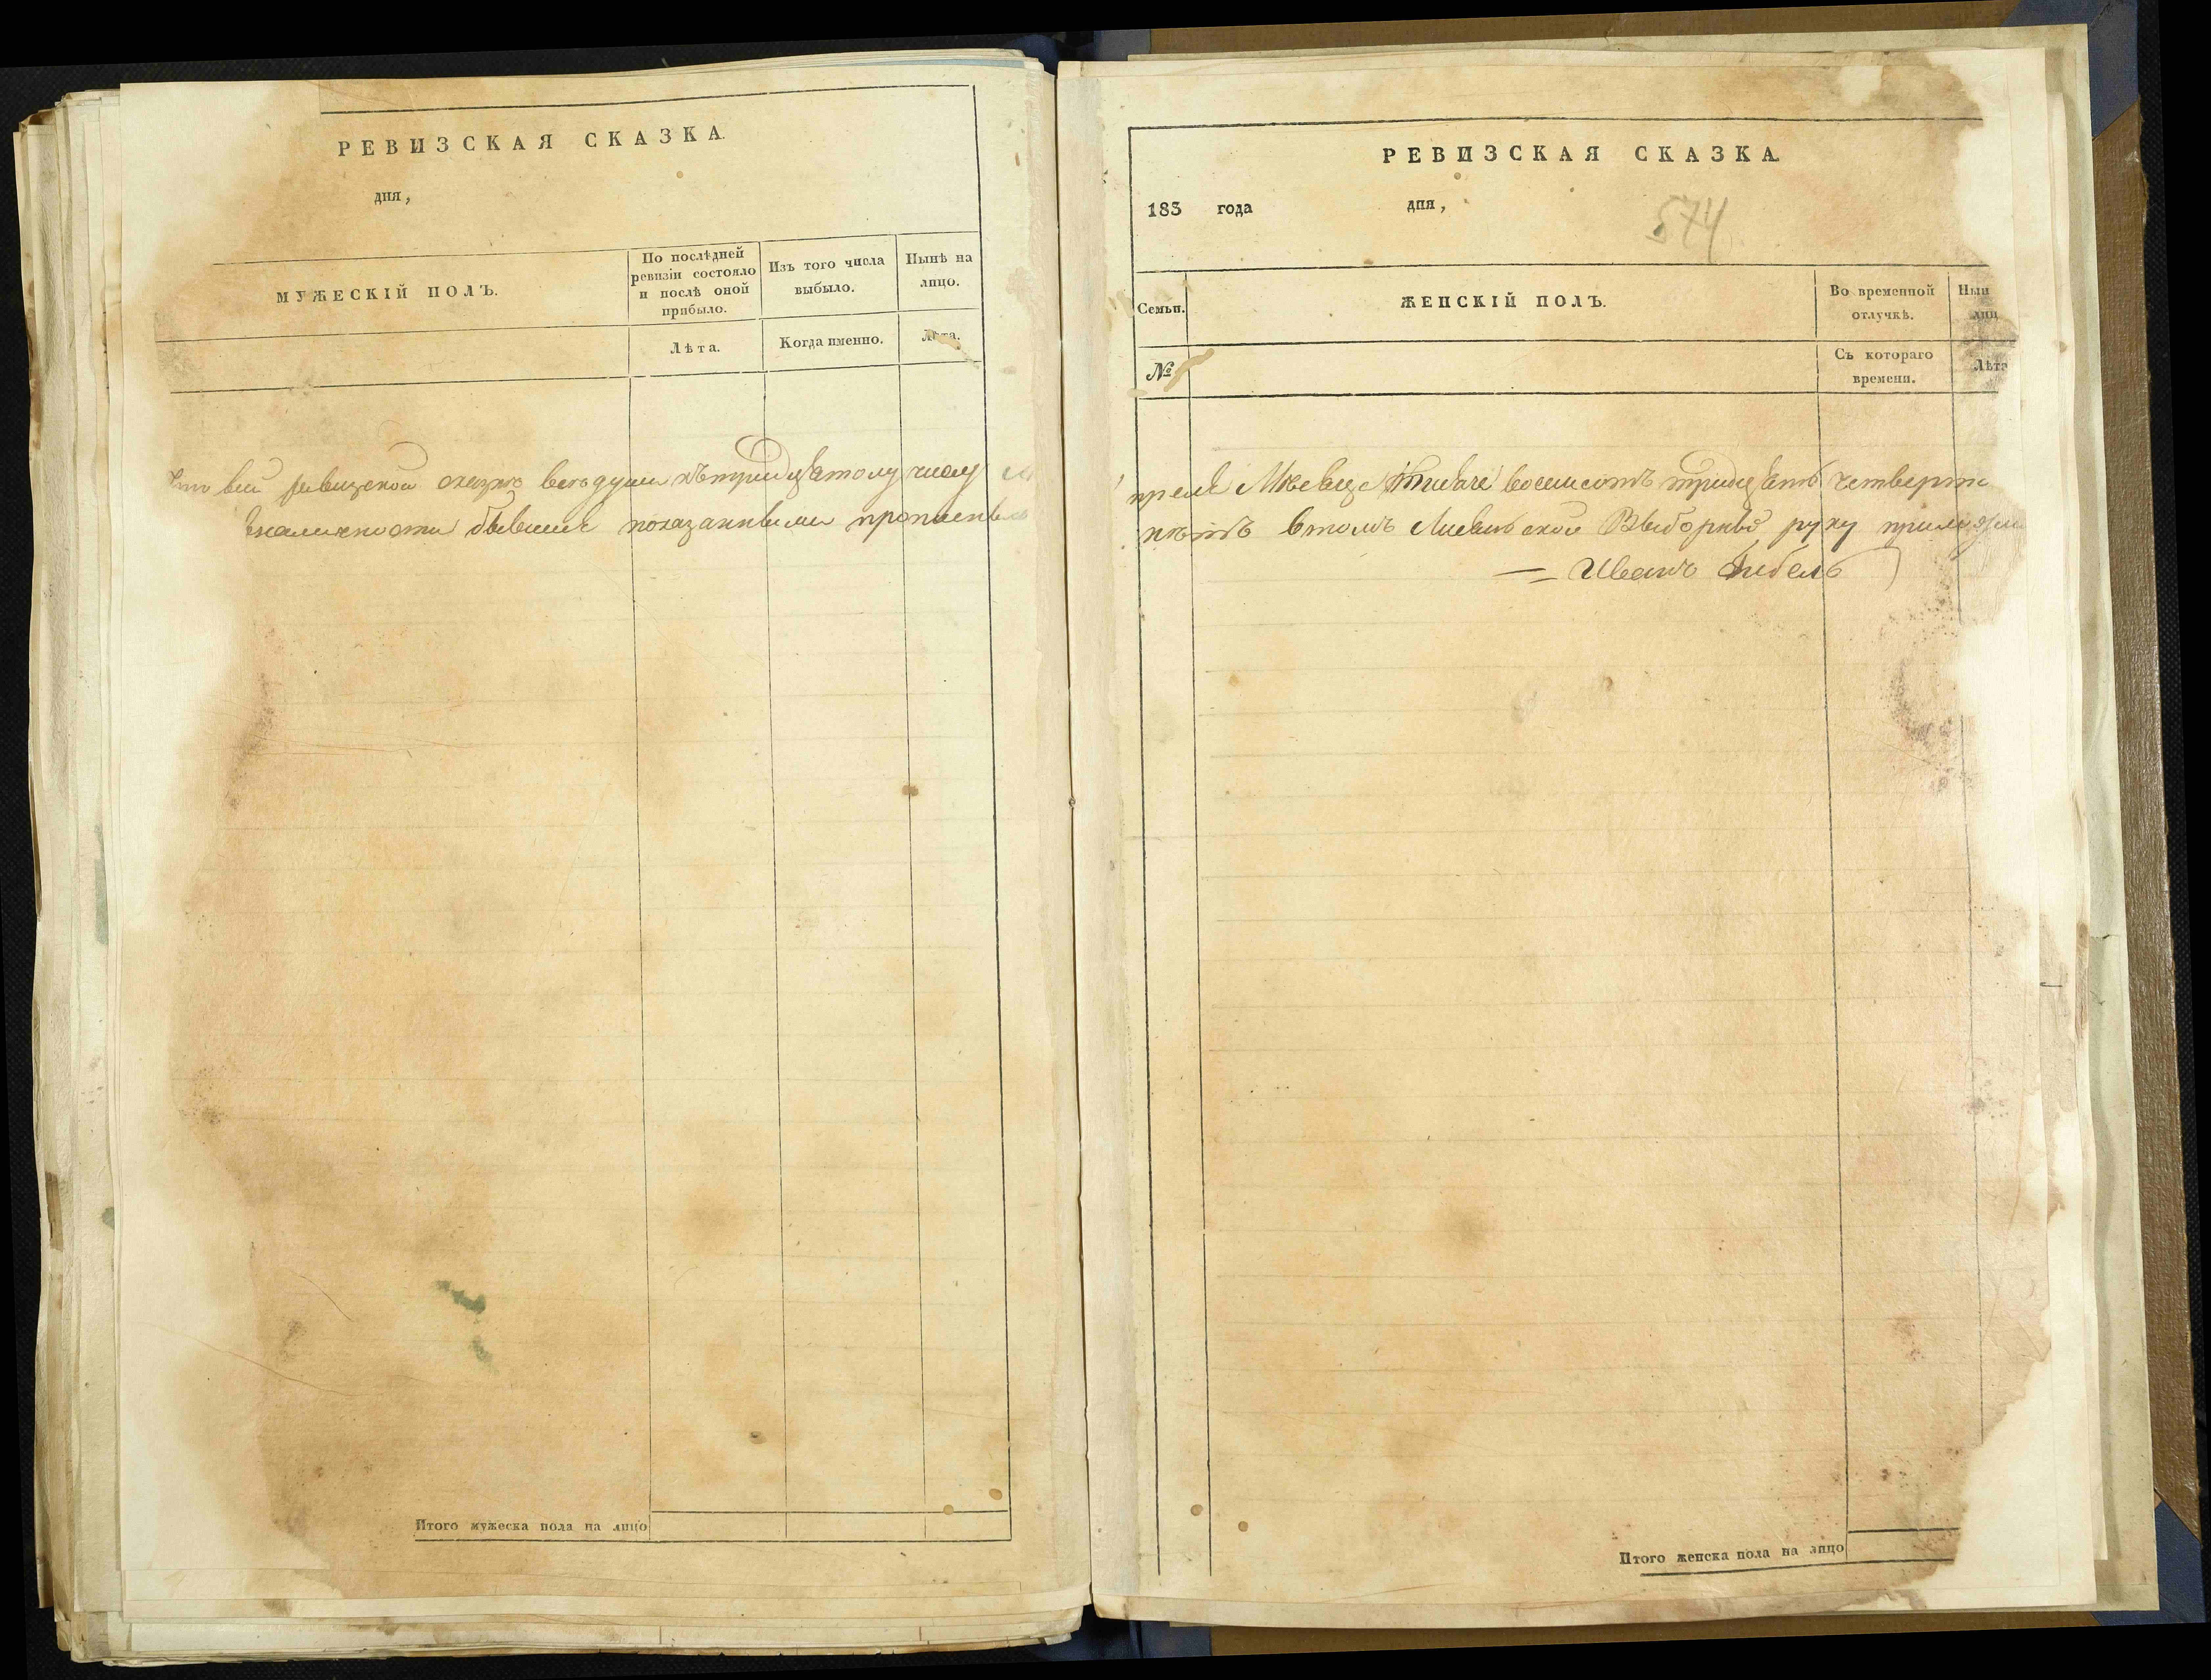 РЕВИЗСКАЯ СКАЗКА.
дня,
МУЖЕСКІЙ ПОЛЪ.
По послѣдней ревизіи состояло и послѣ оной прибыло.
Изъ того числа выбыло.
Нынѣ на лицо.
Лѣта.
Когда именно.
Лѣта.
что всей ревизской сказке всѣ души къ тридцатому числу
вналичности бывшие показанными
Итого мужеска пола на лицо
РЕВИЗСКАЯ СКАЗКА.
183 года дня,
574
Семьи.
ЖЕНСКІЙ ПОЛЪ.
Во временной отлучкѣ.
Нын
лиц
№
Съ котораго времени.
Лѣта
преля Месеца тисяче восемсотъ тридцать четверто
нѣтъ втомъ Выборный руку приложил
Иванъ
Итого женска пола на лицо